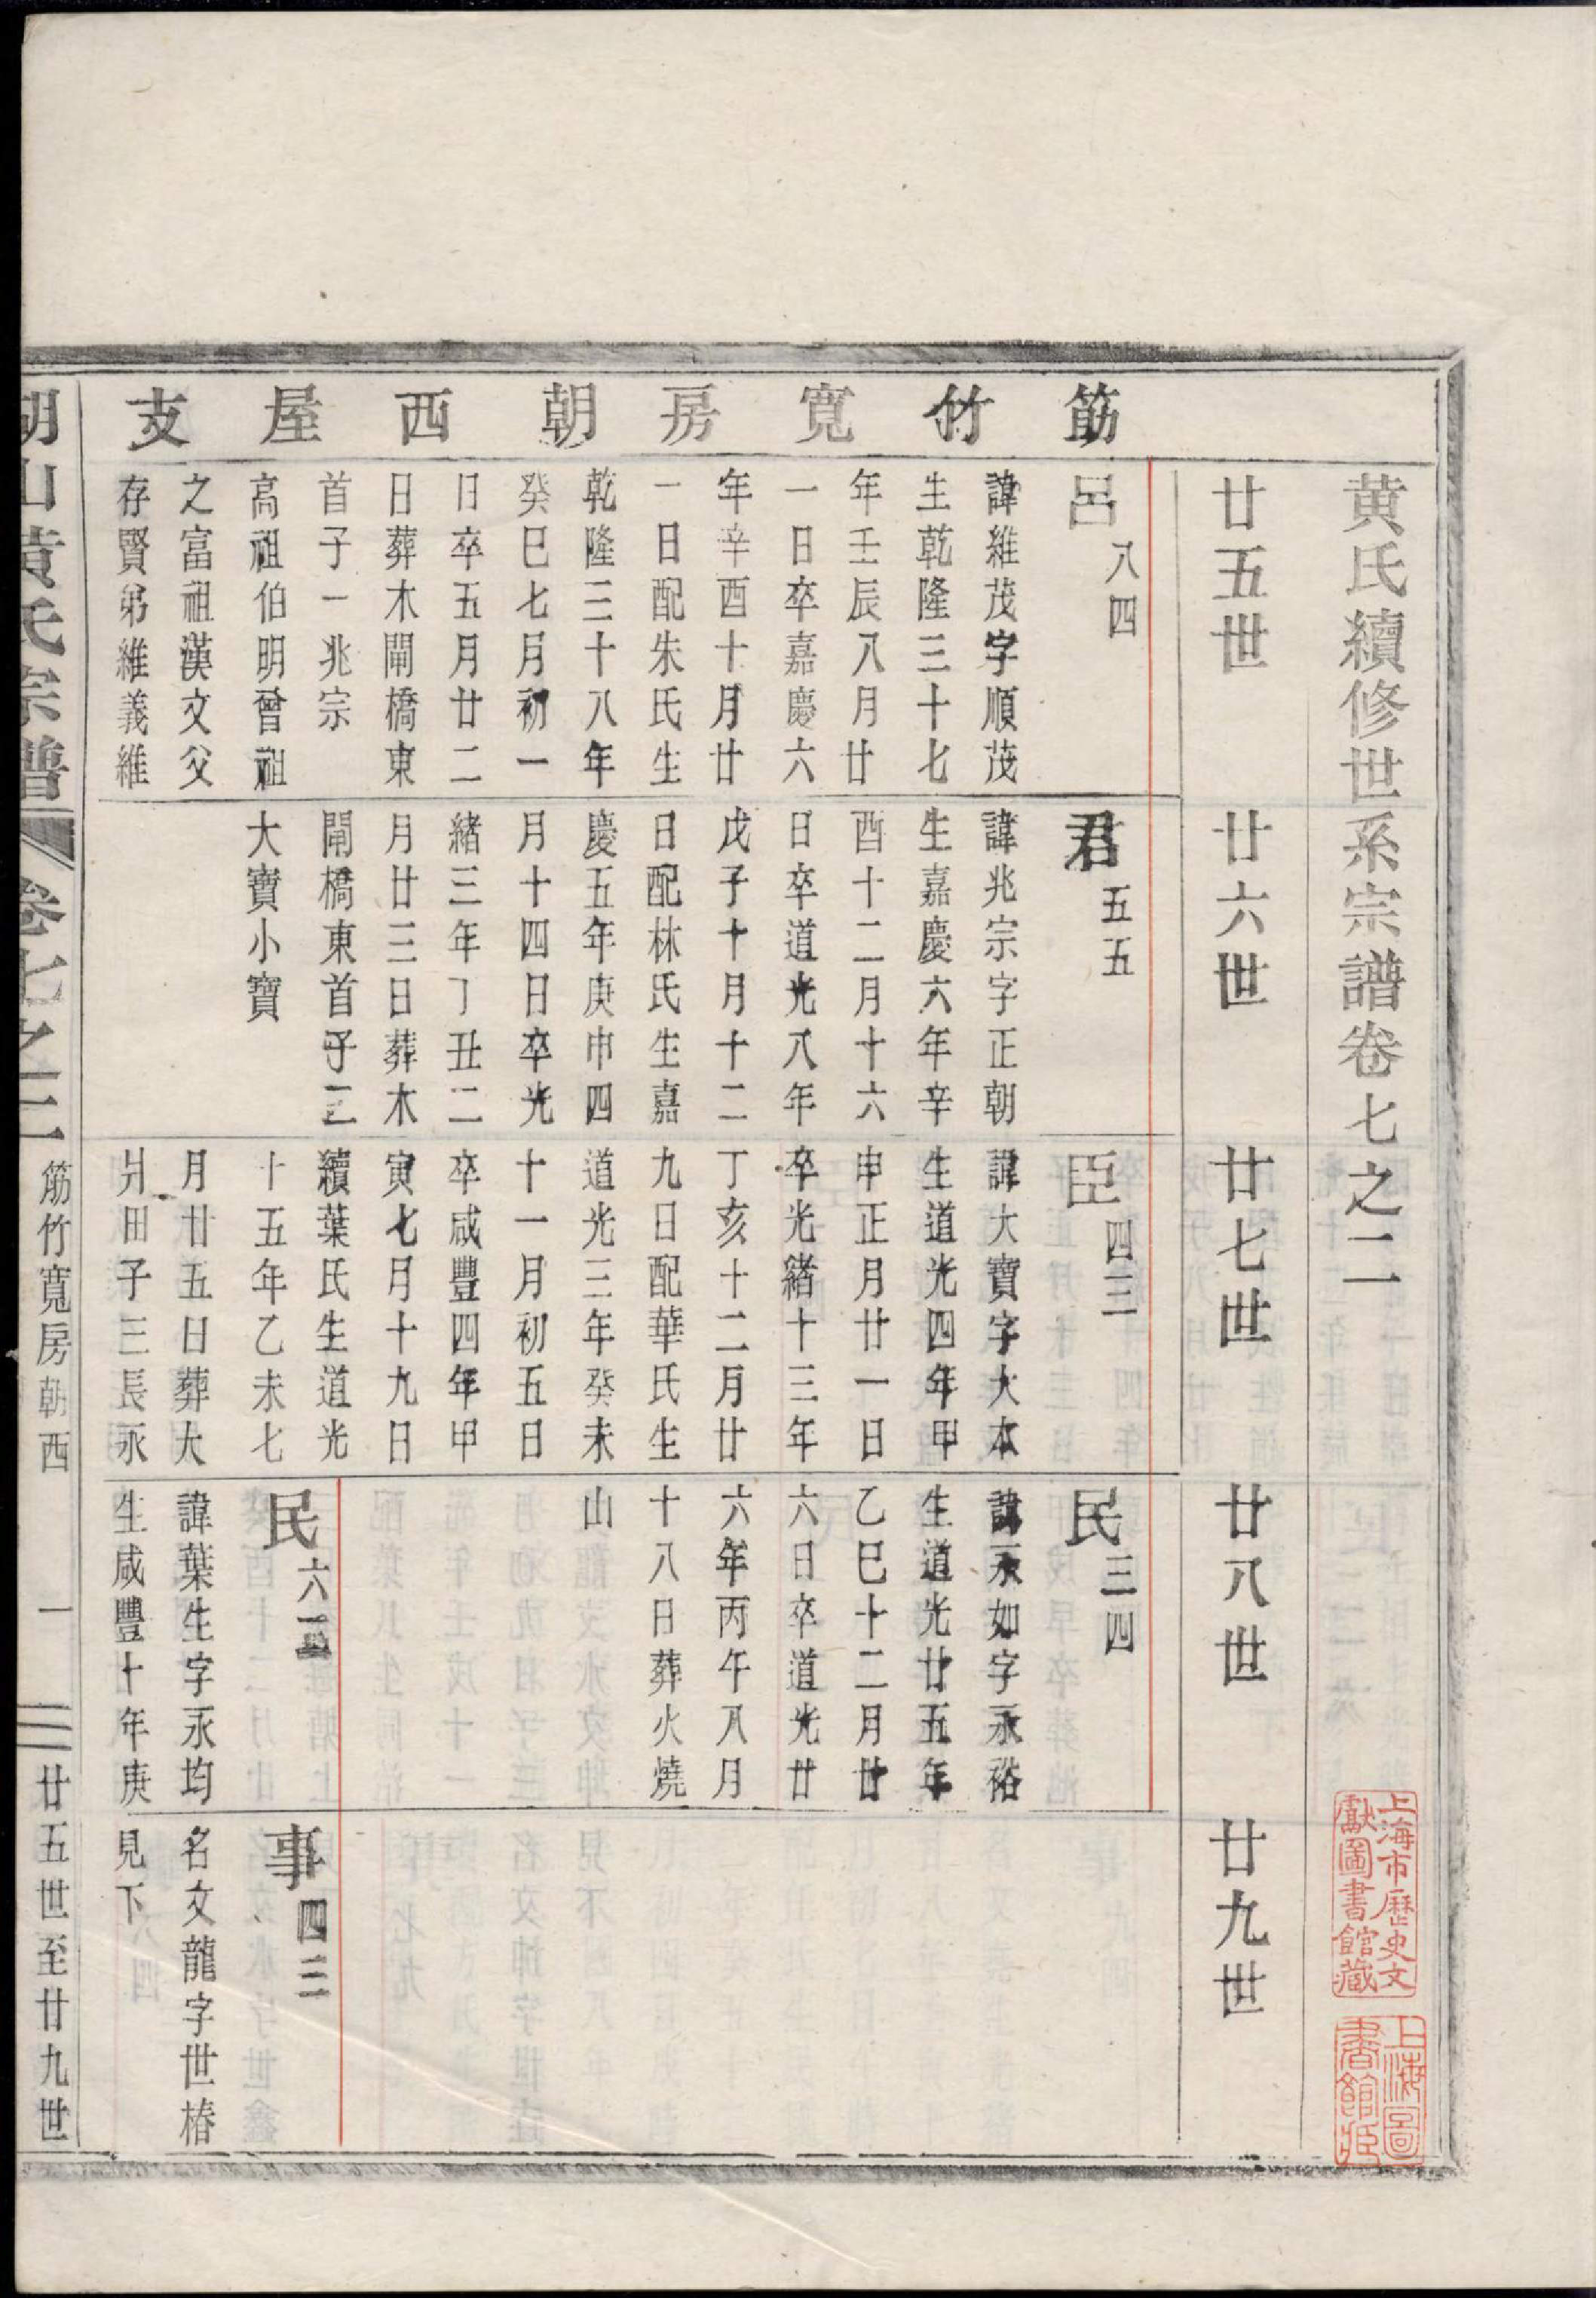 黄氏續修世系宗譜卷七之二
上海市歷史文
獻圖書館藏
上海圖
書館藏
筋竹寬房朝西屋支
廿五世
廿六世
廿七世
廿八世
廿九世
呂八四
諱維茂字順茂
生乾隆三十七
年壬辰八月廿
一日卒嘉慶六
年辛酉十月廿
一日配朱氏生
乾隆三十八年
癸巳七月初一
日卒五月廿二
日葬木閘橋東
首子一兆宗
高祖伯明曾祖
之富祖漢文父
存賢弟維義維
君五五
諱兆宗字正朝
生嘉慶六年辛
酉十二月十六
日卒道光八年
戊子十月十二
日配林氏生嘉
慶五年庚申四
月十四日卒光
緒三年丁丑二
月廿三日葬木
閘橋東首子二
大寶小寶
臣四三
諱大寶字大本
生道光四年甲
申正月廿一日
卒光緒十三年
丁亥十二月廿
九日配華氏生
道光三年癸未
十一月初五日
卒咸豐四年甲
寅七月十九日
續葉氏生道光
十五年乙未七
月廿五日葬大
爿田子三長永
民三四
諱永如字永裕
生道光廿五年
乙巳十二月廿
六日卒道光廿
六年丙午八月
十八日葬火燒
山
民六
諱葉生字永均
生咸豐十年庚
事四三
名文龍字世椿
見下
山黃氏宗譜
卷七之二
筋竹寬房朝西
一
廿五世至廿九世